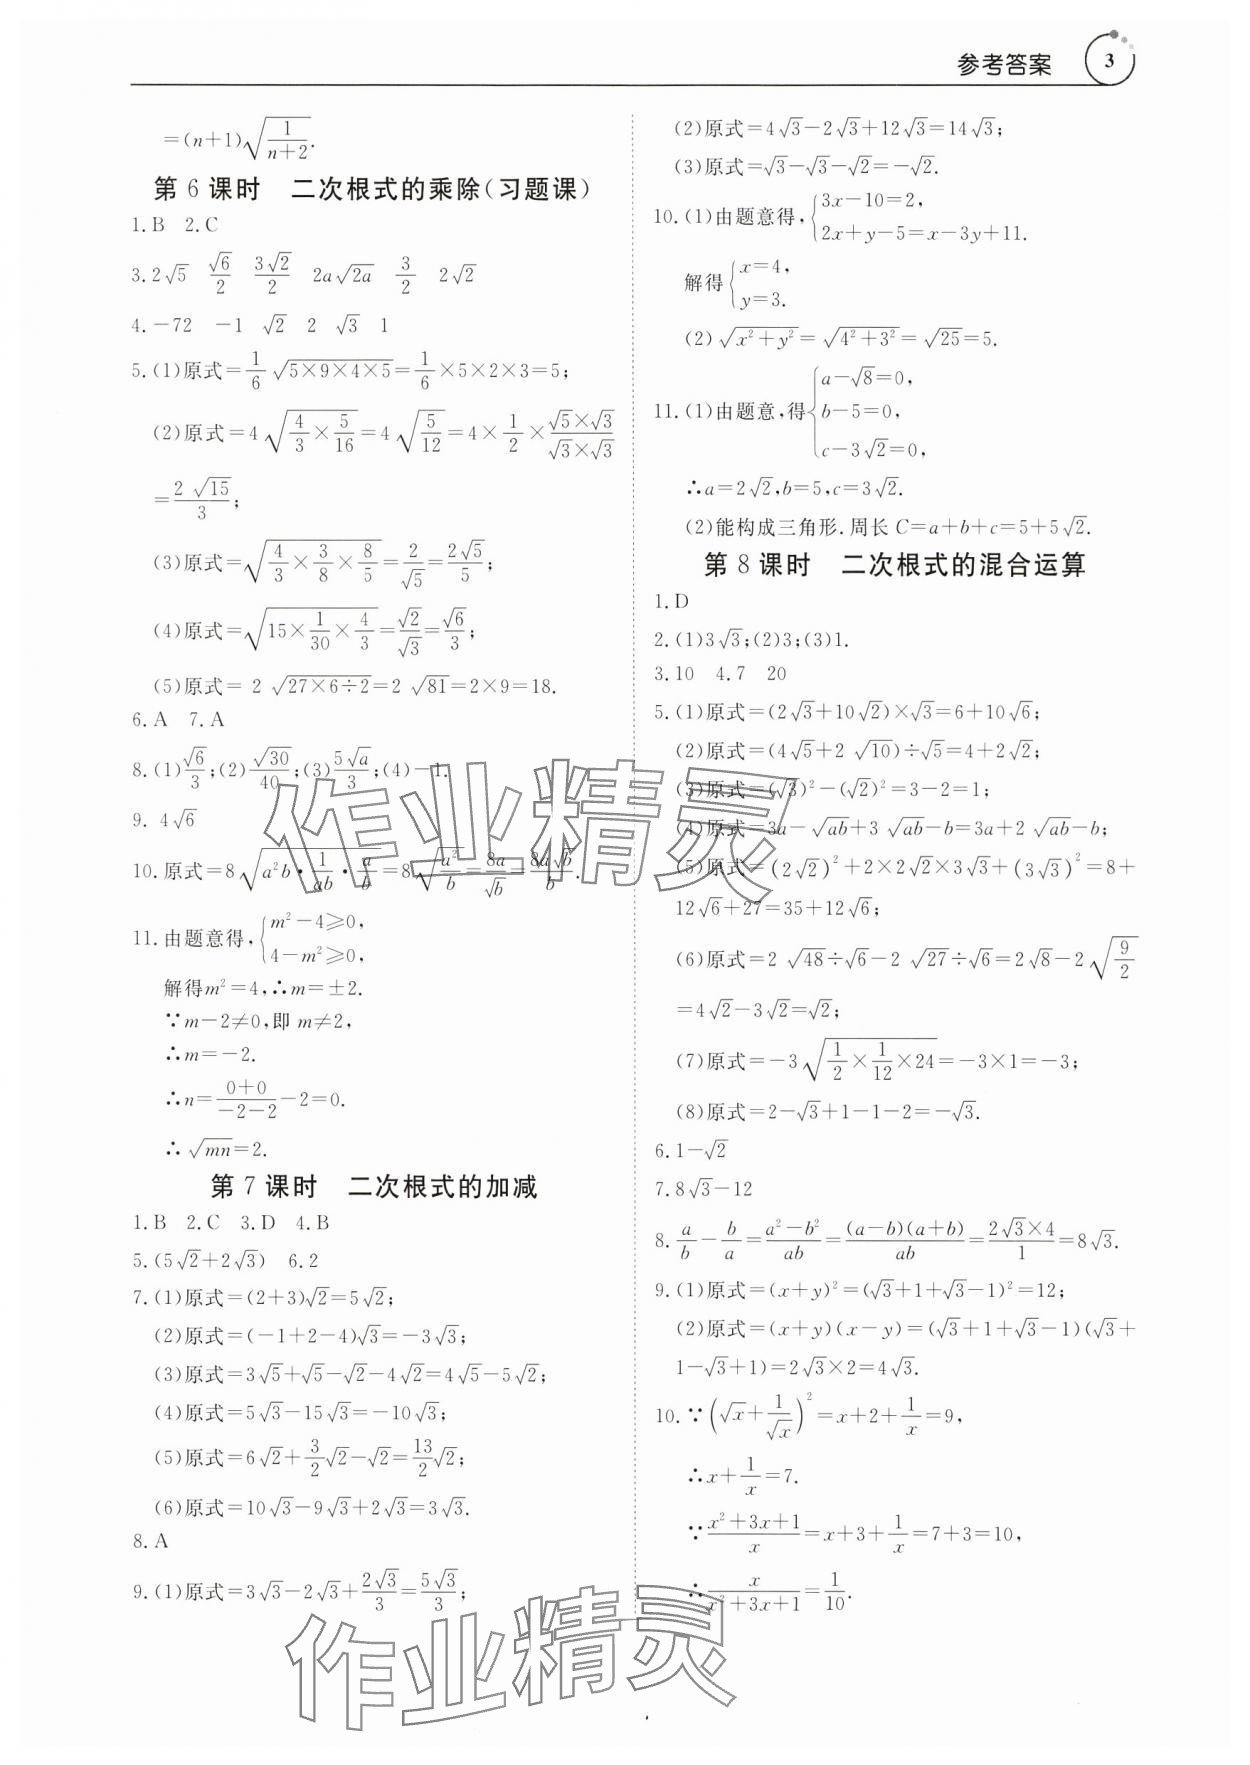 参考答案 3
=(n+1)√(1/(n+2)).
第 6 课时　二次根式的乘除(习题课)
1.B　2.C
3.2√5　√6/2　3√2/2　2a√(2a)　3/2　2√2
4.-72　-1　√2　2　√3　1
5.(1)原式=1/6 √(5×9×4×5)=1/6×5×2×3=5;
(2)原式=4√(4/3×5/16)=4√(5/12)=4×1/2×(√5×√3)/(√3×√3)
=2√15/3;
(3)原式=√(4/3×3/8×8/5)=2/√5=2√5/5;
(4)原式=√(15×1/30×4/3)=√2/√3=√6/3;
(5)原式= 2 √(27×6÷2)=2 √81=2×9=18.
6.A　7.A
8.(1)√6/3;(2)√30/40;(3)5√a/3;(4)-1.
9. 4√6
10.原式=8√(a²b·1/(ab)·a/b)=8√(a²/b)=8a/√b=8a√b/b.
11.由题意得,{m²-4≥0,
4-m²≥0,
解得m²=4,∴m=±2.
∵m-2≠0,即 m≠2,
∴m=-2.
∴n=(0+0)/(-2-2)-2=0.
∴√(mn)=2.
第 7 课时　二次根式的加减
1.B　2.C　3.D　4.B
5.(5√2+2√3)　6.2
7.(1)原式=(2+3)√2=5√2;
(2)原式=(-1+2-4)√3=-3√3;
(3)原式=3√5+√5-√2-4√2=4√5-5√2;
(4)原式=5√3-15√3=-10√3;
(5)原式=6√2+3/2√2-√2=13/2√2;
(6)原式=10√3-9√3+2√3=3√3.
8.A
9.(1)原式=3√3-2√3+2√3/3=5√3/3;
(2)原式=4√3-2√3+12√3=14√3;
(3)原式=√3-√3-√2=-√2.
10.(1)由题意得,{3x-10=2,
2x+y-5=x-3y+11.
解得{x=4,
y=3.
(2)√(x²+y²)=√(4²+3²)=√25=5.
11.(1)由题意,得{a-√8=0,
b-5=0,
c-3√2=0,
∴a=2√2,b=5,c=3√2.
(2)能构成三角形.周长 C=a+b+c=5+5√2.
第 8 课时　二次根式的混合运算
1.D
2.(1)3√3;(2)3;(3)1.
3.10　4.7　20
5.(1)原式=(2√3+10√2)×√3=6+10√6;
(2)原式=(4√5+2 √10)÷√5=4+2√2;
(3)原式=(√3)²-(√2)²=3-2=1;
(4)原式=3a-√(ab)+3 √(ab)-b=3a+2 √(ab)-b;
(5)原式=(2√2)²+2×2√2×3√3+(3√3)²=8+
12√6+27=35+12√6;
(6)原式=2 √48÷√6-2 √27÷√6=2√8-2√(9/2)
=4√2-3√2=√2;
(7)原式=-3√(1/2×1/12×24)=-3×1=-3;
(8)原式=2-√3+1-1-2=-√3.
6.1-√2
7.8√3-12
8.a/b-b/a=(a²-b²)/ab=(a-b)(a+b)/ab=(2√3×4)/1=8√3.
9.(1)原式=(x+y)²=(√3+1+√3-1)²=12;
(2)原式=(x+y)(x-y)=(√3+1+√3-1)(√3+
1-√3+1)=2√3×2=4√3.
10.∵(√x+1/√x)²=x+2+1/x=9,
∴x+1/x=7.
∵(x²+3x+1)/x=x+3+1/x=7+3=10,
∴x/(x²+3x+1)=1/10.
作业精灵
作业精灵